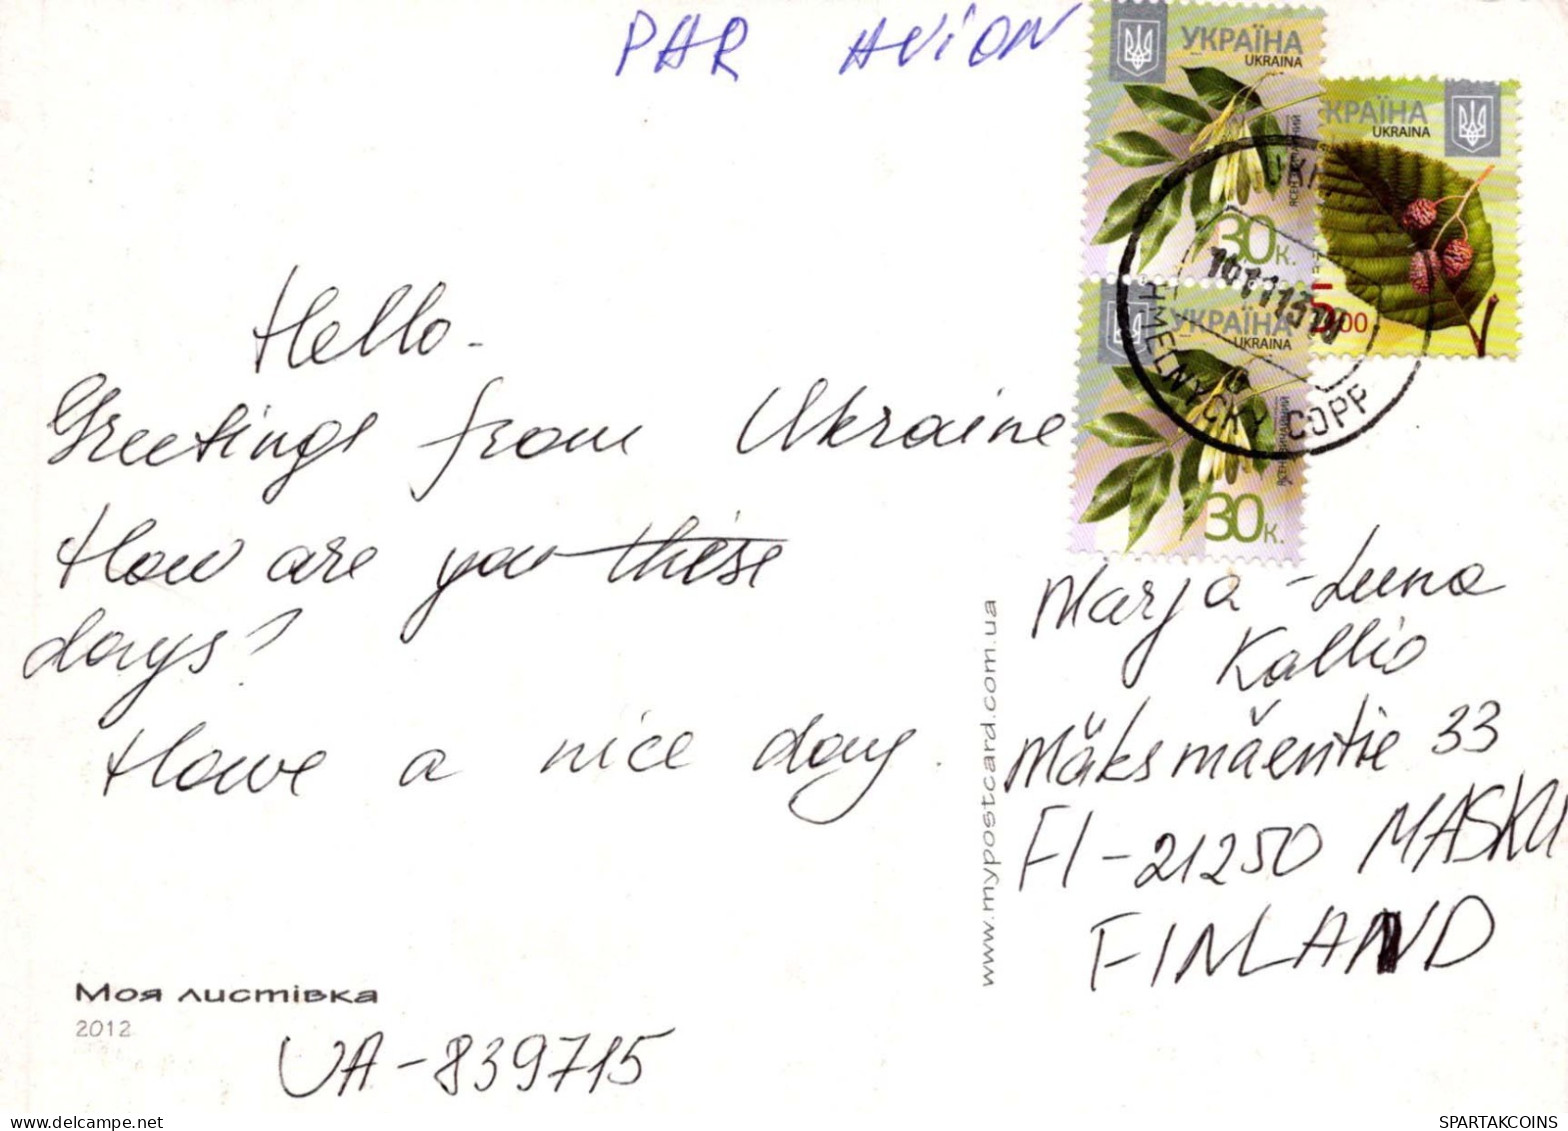 PAR AViON
УКРАЇНА
UKRAINA
30к.
КРАЇНА
UKRAINA
5.00
УКРАЇНА
UKRAINA
30к.
HMELNYCKY COPP
Hello -
Greetings from Ukraine
How are you these
days?
Have a nice day.
Marja-Leena
Kallio
Mäksmäentie 33
FI-21250 MASKU
FINLAND
www.mypostcard.com.ua
Моя листівка
2012
UA-839715
SPARTAKCOINS